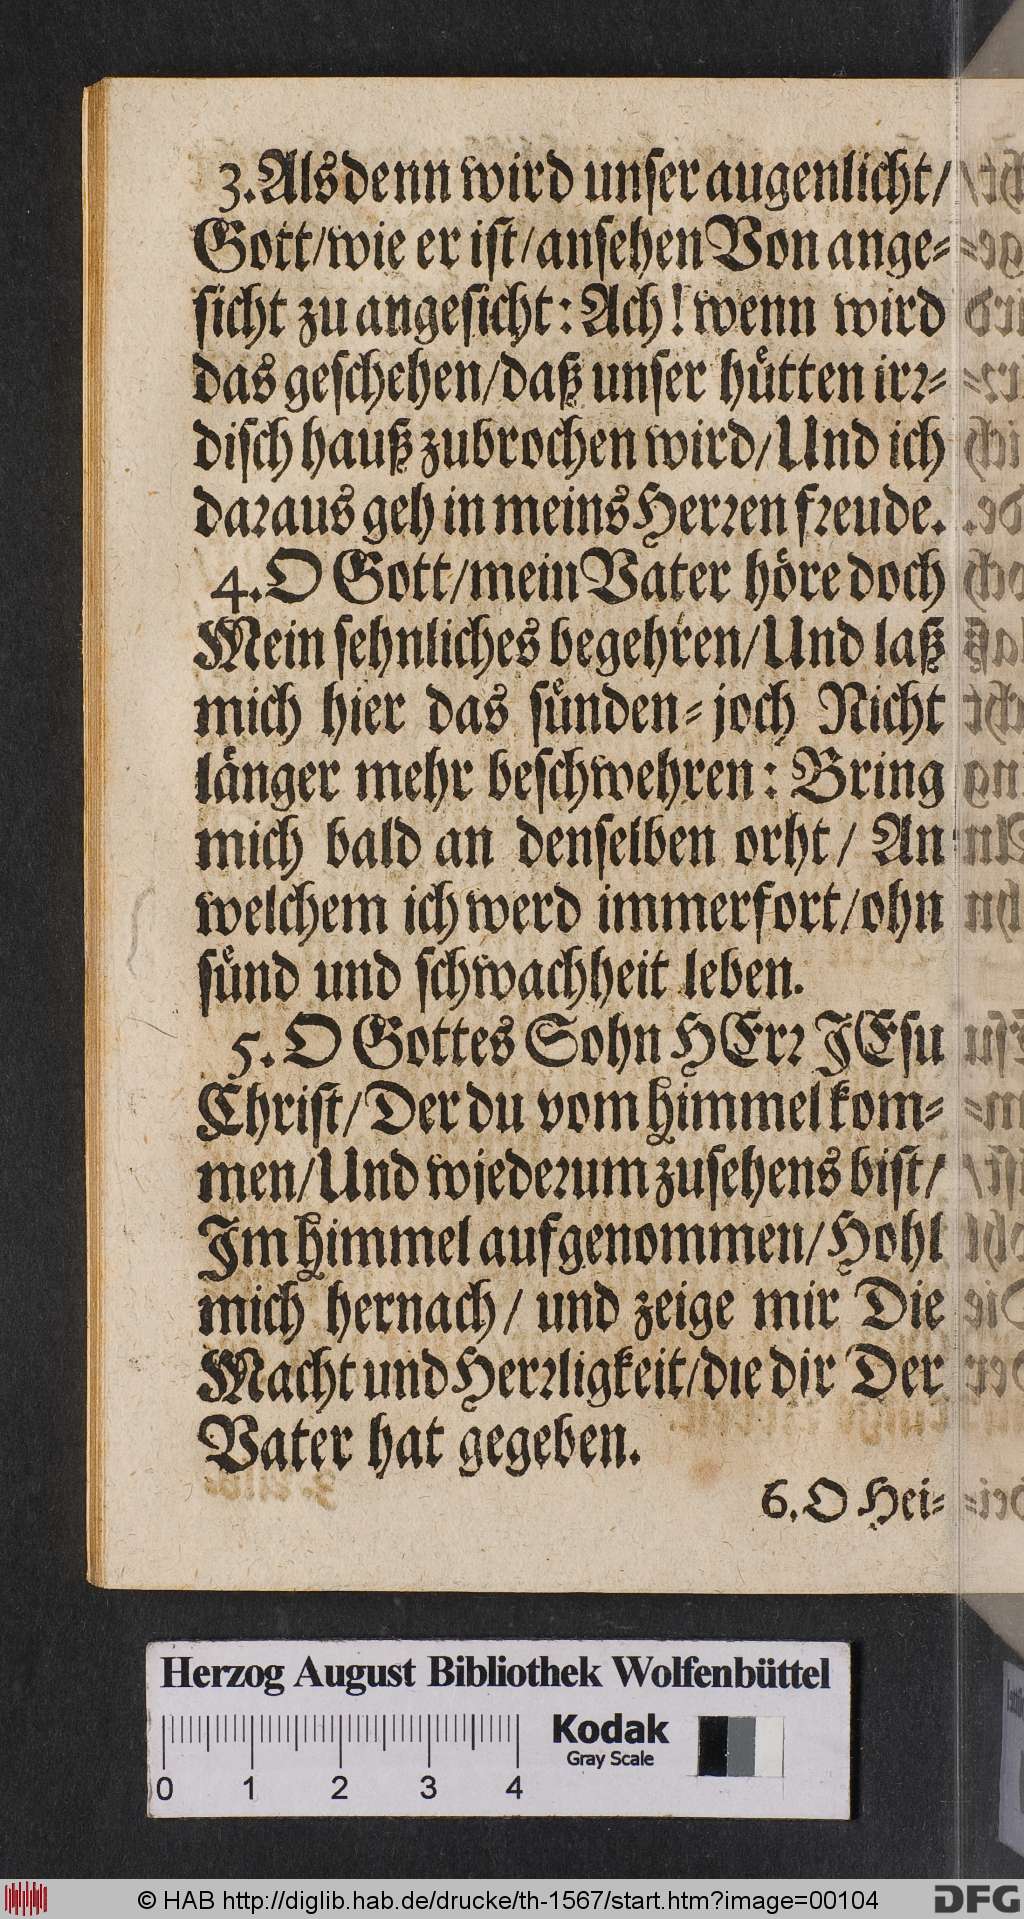 3. Alsdenn wird unser augenlicht/
Gott/wie er ist/ansehen Von ange-
sicht zu angesicht: Ach! wenn wird
das geschehen/daß unser huͤtten irꝛ-
disch hauß zubrochen wird/Und ich
daꝛaus geh in meins Herꝛen fꝛeude.
4. O Gott/mein Vater höre doch
Mein sehnliches begehren/Und laß
mich hier das suͤnden-joch Nicht
länger mehr beschwehren: Bring
mich bald an denselben orht/ An
welchem ich werd immerfort/ohn
suͤnd und schwachheit leben.
5. O Gottes Sohn HErꝛ JEsu
Christ/Der du vom himmel kom-
men/Und wiedeꝛum zusehens bist/
Im himmel aufgenommen/Hohl
mich hernach/ und zeige mir Die
Macht und Herꝛligkeit/die dir Der
Vater hat gegeben.
6. O Hei-
Herzog August Bibliothek Wolfenbüttel
Kodak
Gray Scale
0 1 2 3 4
© HAB http://diglib.hab.de/drucke/th-1567/start.htm?image=00104
DFG